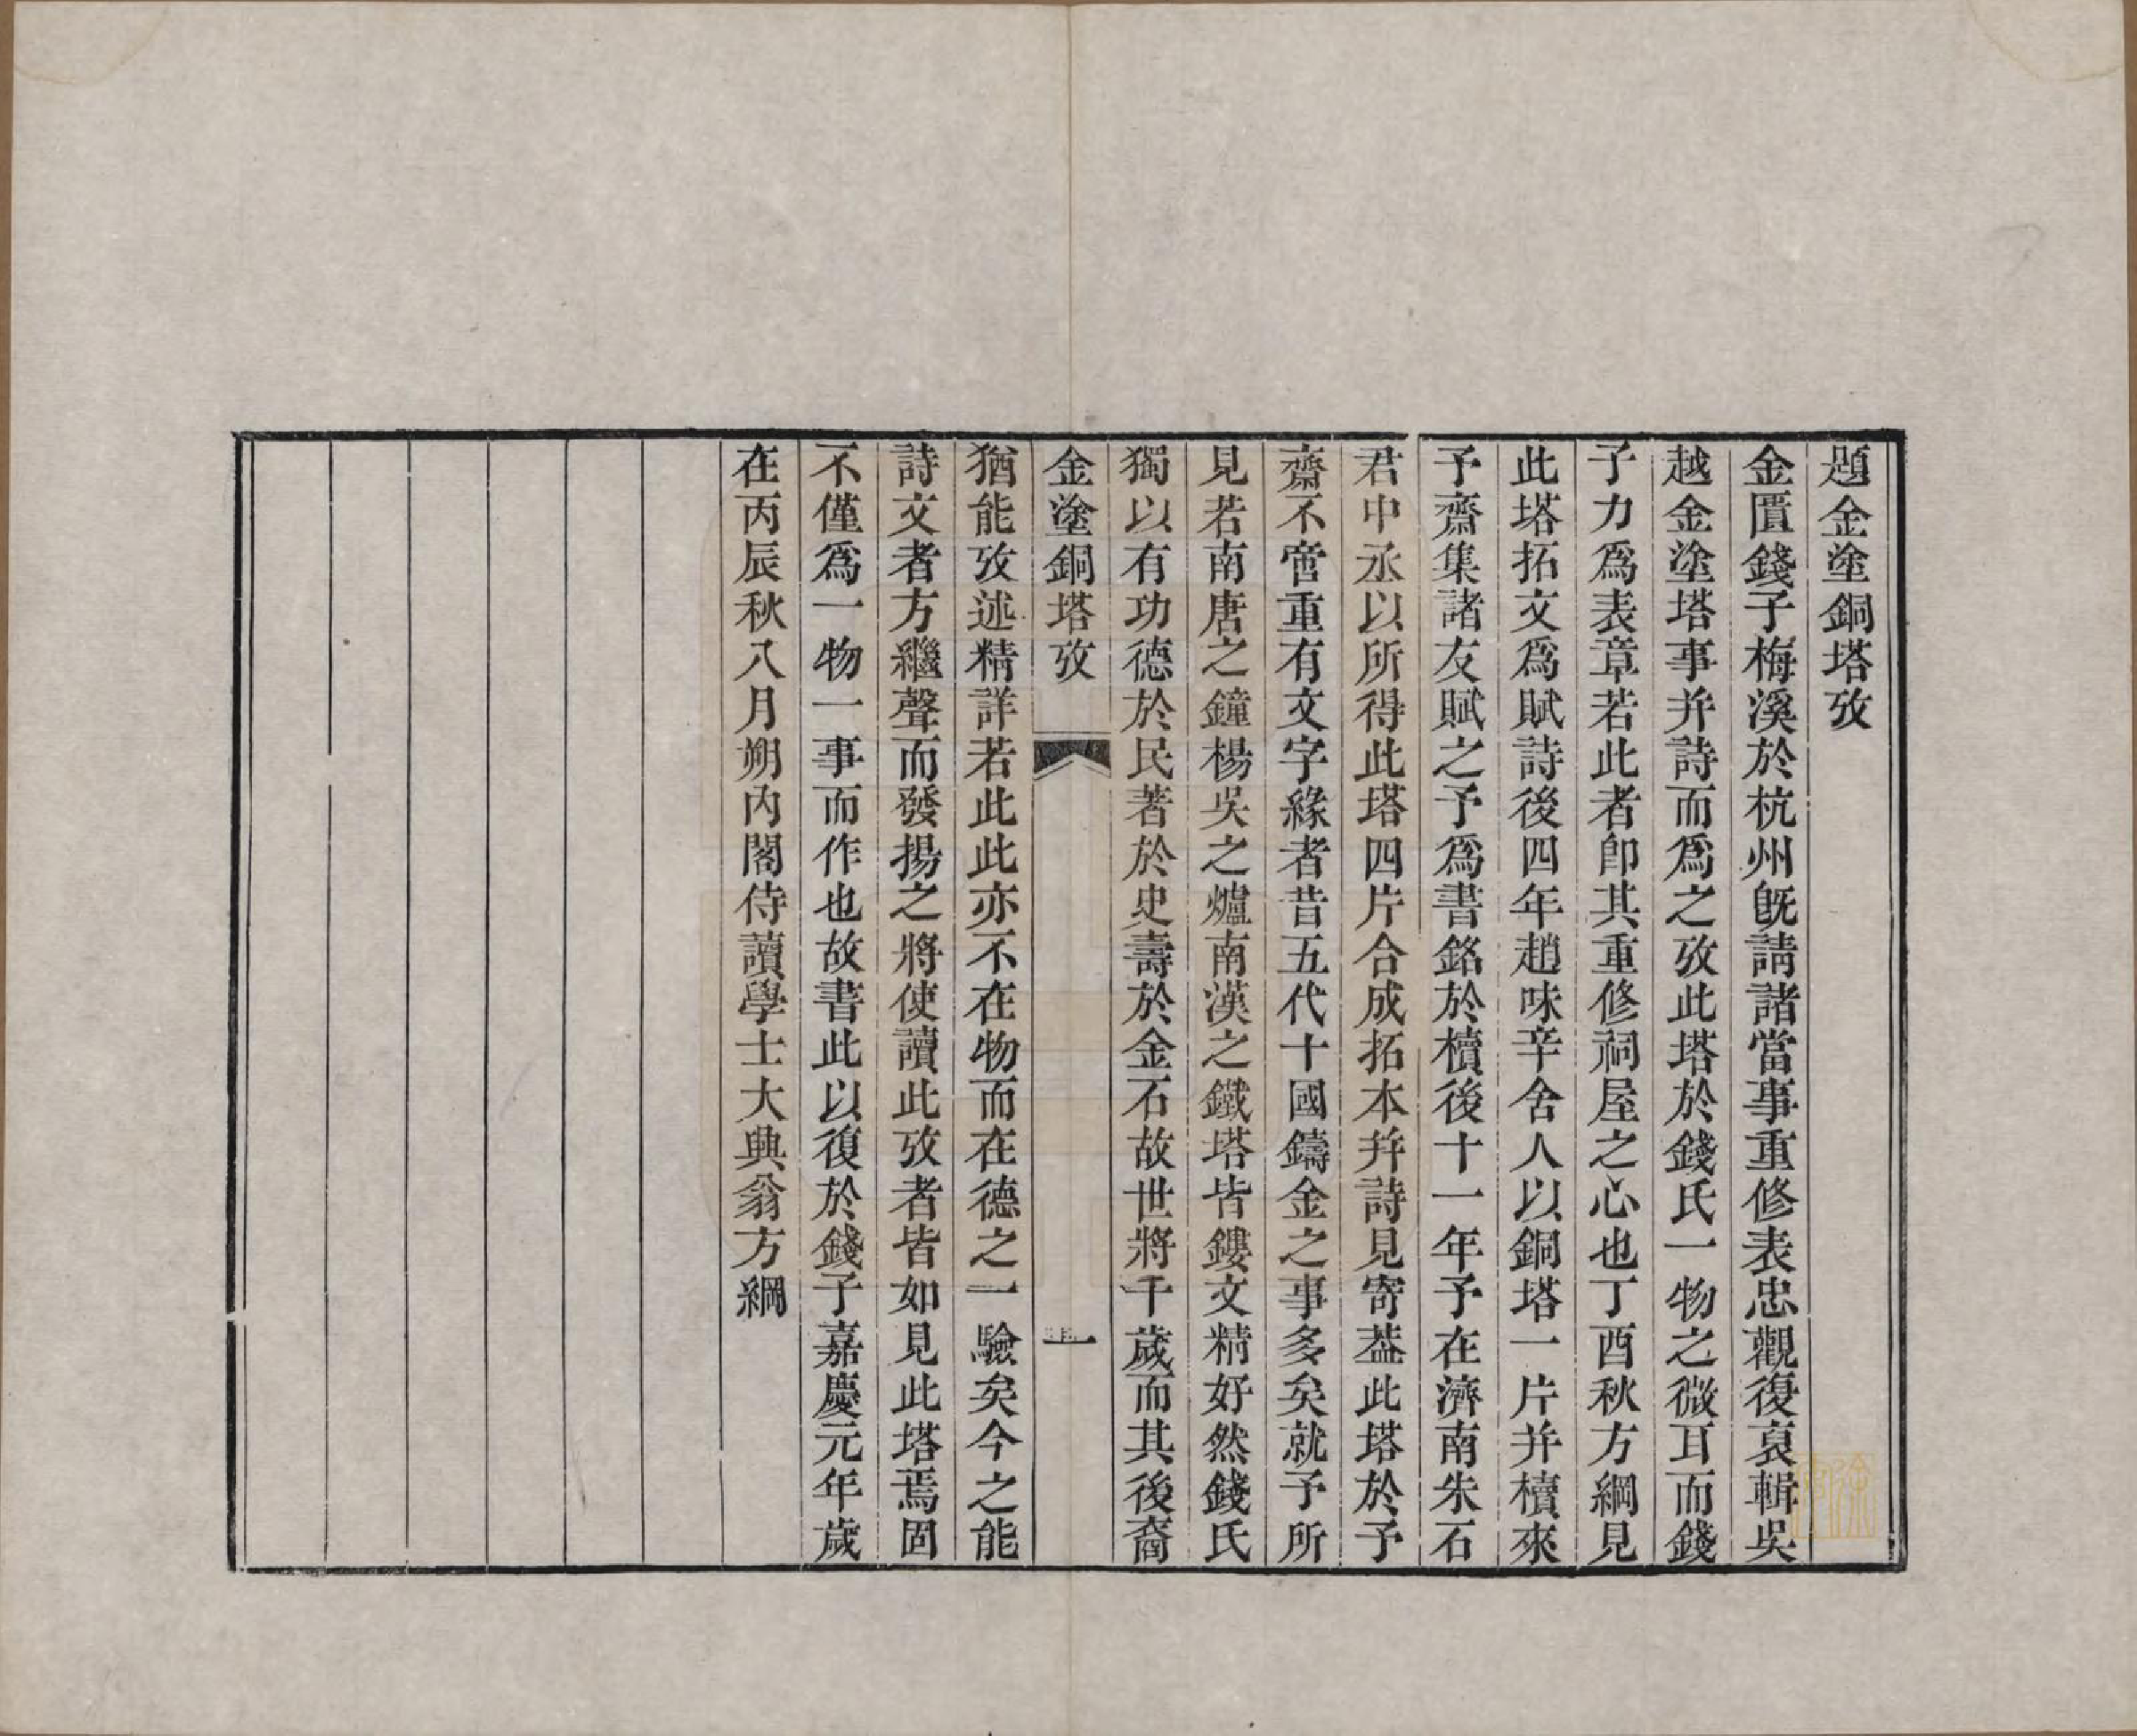 題金塗銅塔攷
金匱錢子梅溪於杭州旣請諸當事重修表忠觀復裒輯吳
越金塗塔事并詩而爲之攷此塔於錢氏一物之微耳而錢
子力爲表章若此者卽其重修祠屋之心也丁酉秋方綱見
此塔拓文爲賦詩後四年趙味辛舍人以銅塔一片并櫝來
予齋集諸友賦之予爲書銘於櫝後十一年予在濟南朱石
君中丞以所得此塔四片合成拓本并詩見寄葢此塔於予
齋不啻重有文字緣者昔五代十國鑄金之事多矣就予所
見若南唐之鐘楊吳之爐南漢之鐵塔皆鏤文精好然錢氏
獨以有功德於民著於史壽於金石故世將千歲而其後裔
金塗銅塔攷 一
猶能攷述精詳若此此亦不在物而在德之一驗矣今之能
詩文者方繼聲而發揚之將使讀此攷者皆如見此塔焉固
不僅爲一物一事而作也故書此以復於錢子嘉慶元年歲
在丙辰秋八月朔内閣侍讀學士大興翁方綱